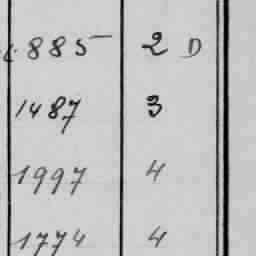 885 2 D
1487 3
1997 4
1774 4